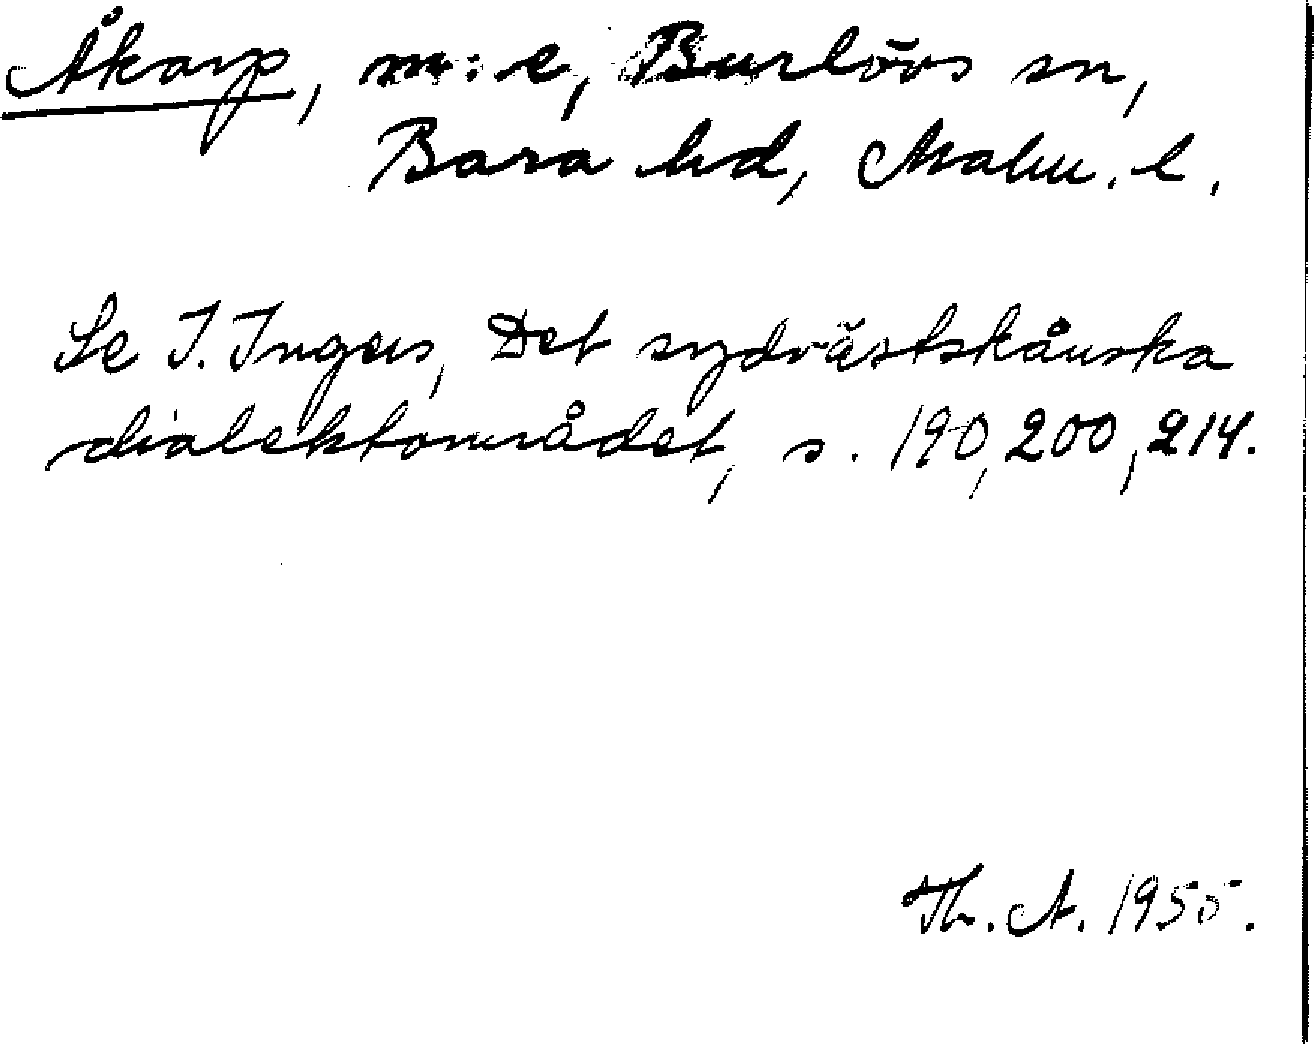 Åkarp, m:e, Burlövs sn,
Bara hd, Malm. l.
Se I. Ingers, Det sydvästskånska
dialektområdet, s. 190, 200, 214.
Th. A. 1955.